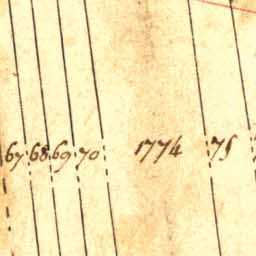 67 68 69 70 1774 75